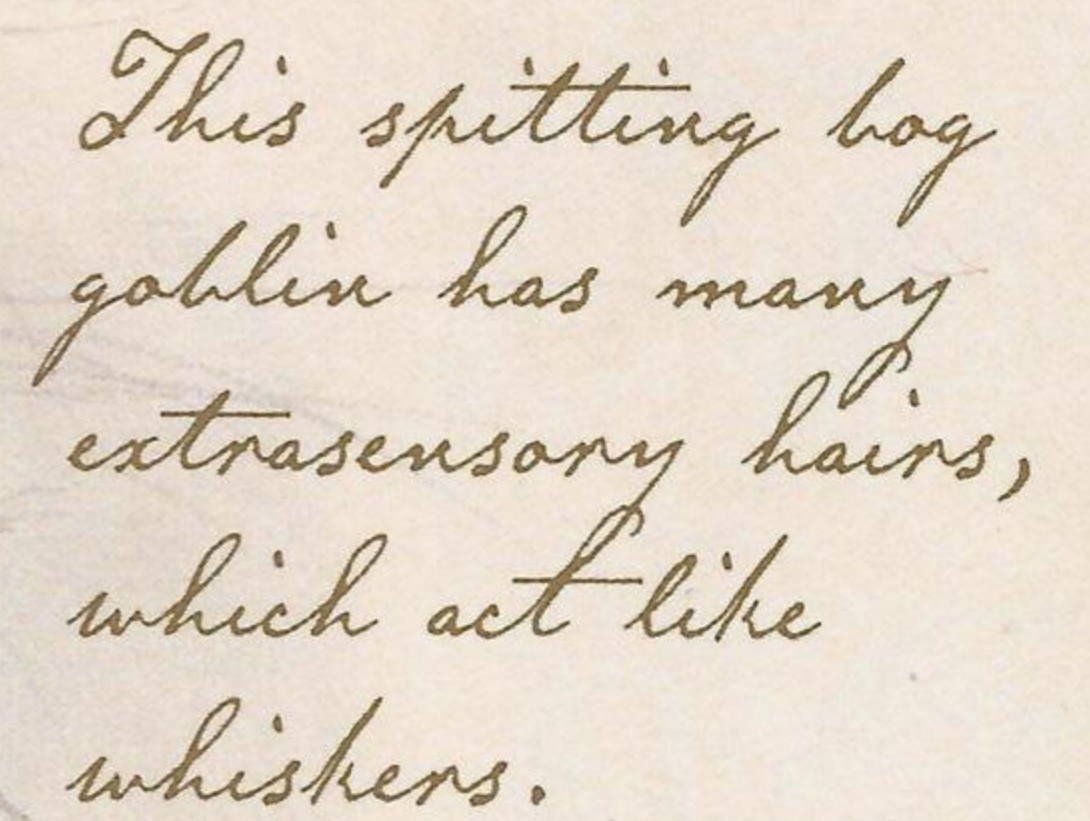 This spitting bog
goblin has many
extrasensory hairs,
which act like
whiskers.